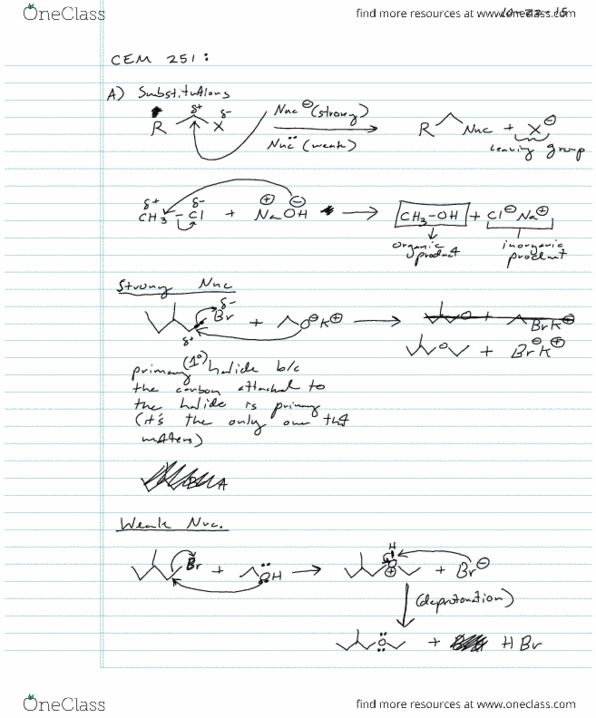 OneClass find more resources at www.oneclass.com
10-22-15
CEM 251:
A) Substitutions
R δ+ δ- X Nuc ⊖ (strong) R Nuc + X⊖
Nuc (weak) leaving group
δ+ δ-
CH3 - Cl + Na⊕ ⊖OH → CH3-OH + Cl⊖ Na⊕
organic product inorganic product
Strong Nuc
Br δ- + O⊖K⊕ → O + BrK⊕
δ+ O + Br⊖K⊕
primary (1°) halide b/c
the carbon attached to
the halide is primary
(it's the only one that
matters)
Weak Nuc.
Br + ÖH → H O⊕ + Br⊖
(deprotonation)
O + HBr
OneClass find more resources at www.oneclass.com